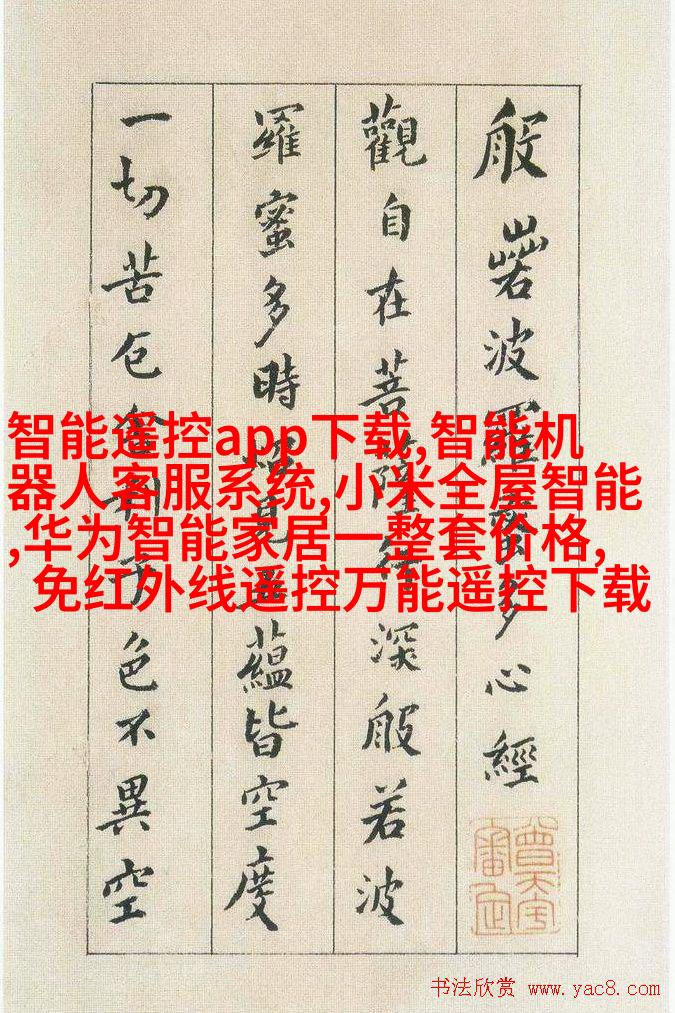 般若波羅蜜多心經
觀自在菩薩行深般若波
羅蜜多時照見五蘊皆空度
一切苦厄舍利子色不異空
智能遥控app下载,智能机
器人客服系统,小米全屋智能
,华为智能家居一整套价格,
免红外线遥控万能遥控下载
书法欣赏 www.yac8.com